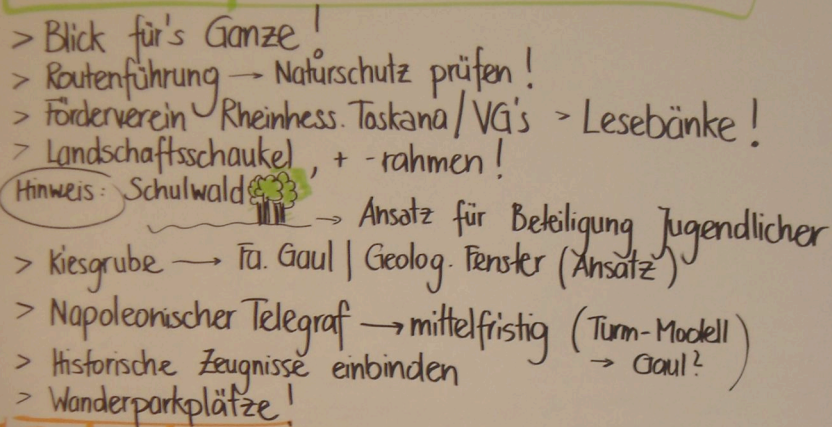 > Blick für's Ganze!
> Routenführung → Naturschutz prüfen!
> Förderverein Rheinhess. Toskana/VG's > Lesebänke!
> Landschaftsschaukel, + -rahmen!
Hinweis: Schulwald
→ Ansatz für Beteiligung Jugendlicher
> Kiesgrube → Fa. Gaul | Geolog. Fenster (Ansatz)
> Napoleonischer Telegraf → mittelfristig (Turm-Modell
→ Gaul?)
> Historische Zeugnisse einbinden
> Wanderparkplätze!